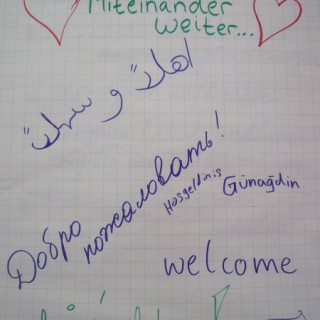 Miteinander
weiter...
اهلاً و سهلاً
Добро
пожаловать!
Hosgeldinis
Günağdin
welcome